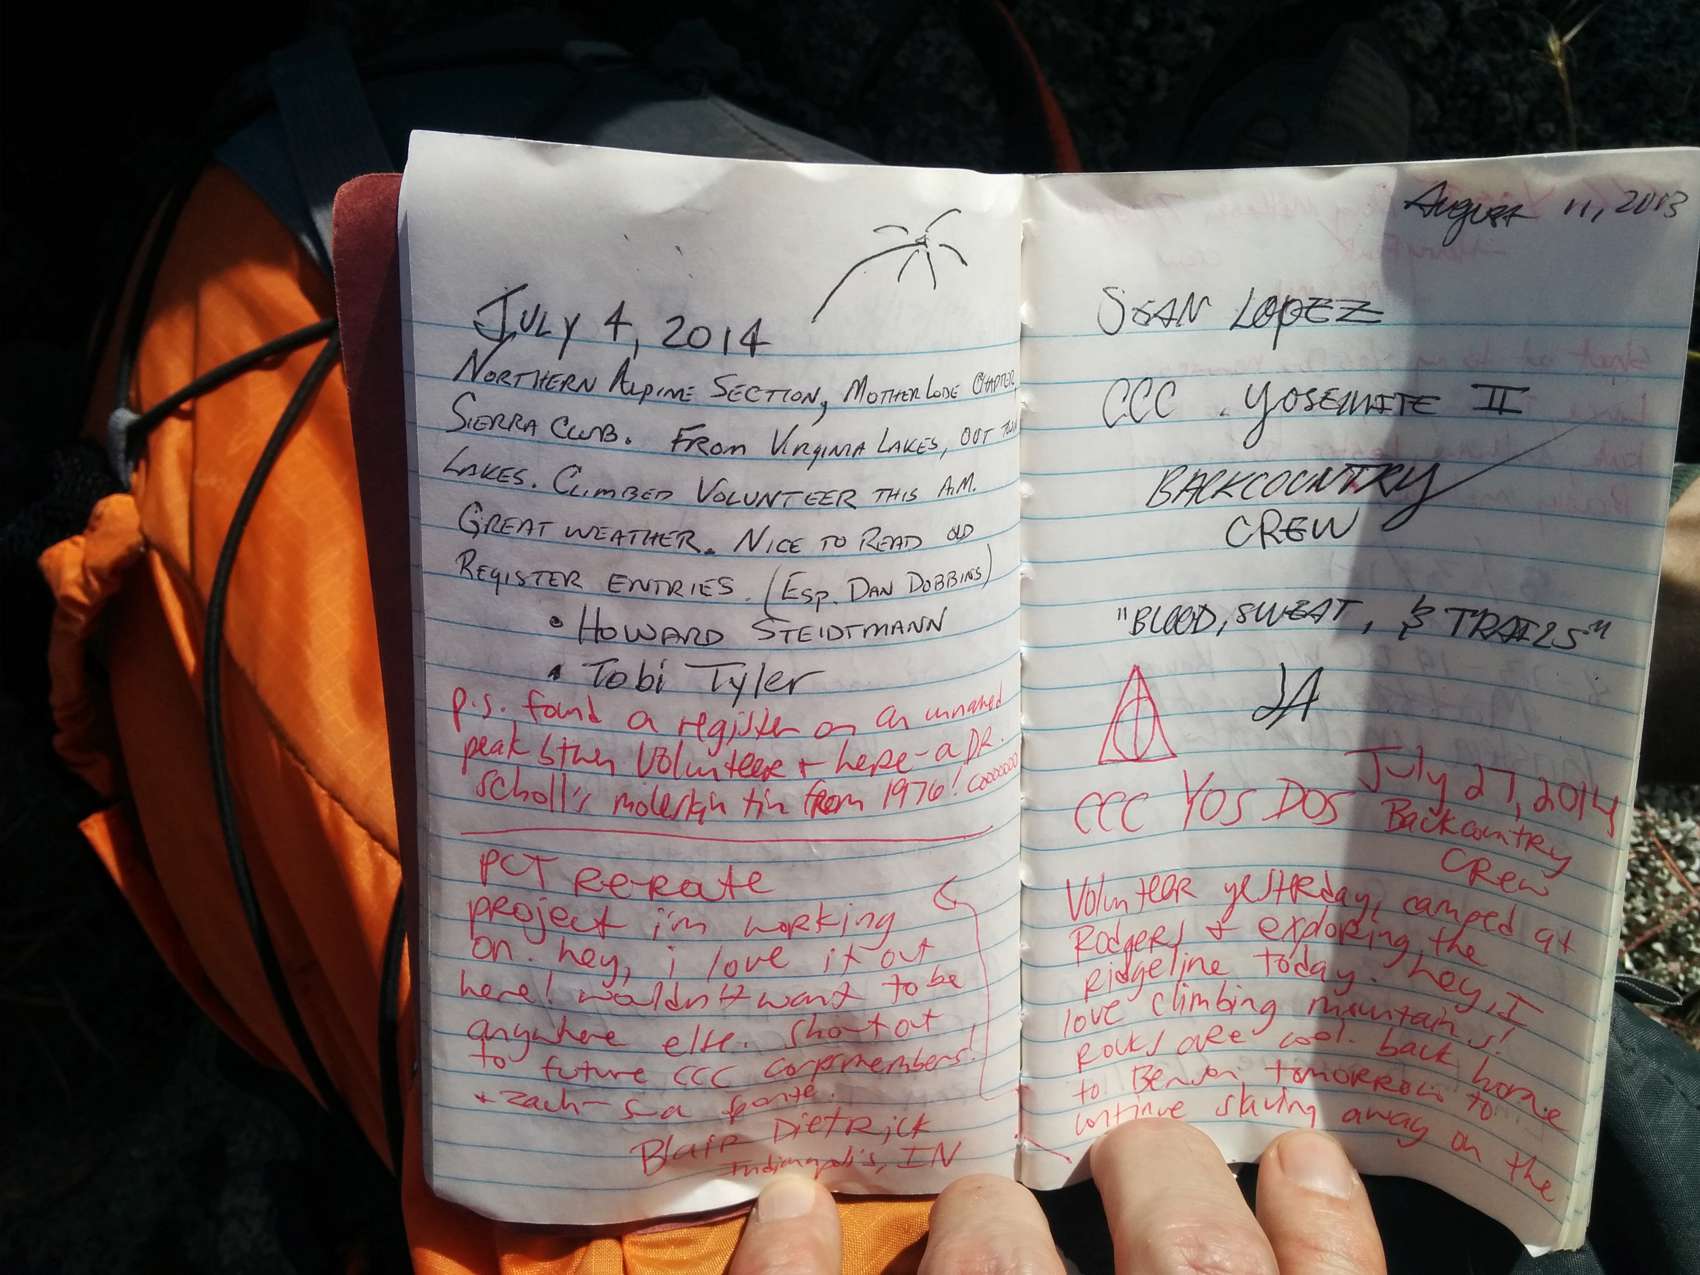 July 4, 2014
Northern Alpine Section, Mother Lode Chapter,
Sierra Club. From Virginia Lakes, out Twin
Lakes. Climbed Volunteer this A.M.
Great weather. Nice to read old
register entries. (Esp. Dan Dobbins)
• Howard Steidtmann
• Tobi Tyler
p.s. found a register on an unnamed
peak btwn Volunteer + here - a DR.
scholl's moleskin tin from 1976! Coooooo
PCT re-rate
project i'm working
on. hey, i love it out
here! wouldn't want to be
anywhere else. shout out
to future CCC corpsmembers!
+ zach-
Blair Dietrick
Indianapolis, IN
August 11, 2013
Sean Lopez
CCC . Yosemite II
Backcountry
Crew
"Blood, Sweat, & Trails"
JA
July 27, 2014
CCC Yos Dos Backcountry
Crew
Volunteer yesterday, camped at
Rodgers & exploring the
ridgeline today. hey, I
love climbing mountains!
Rocks are cool. back home
to Benson tomorrow to
continue slaving away on the